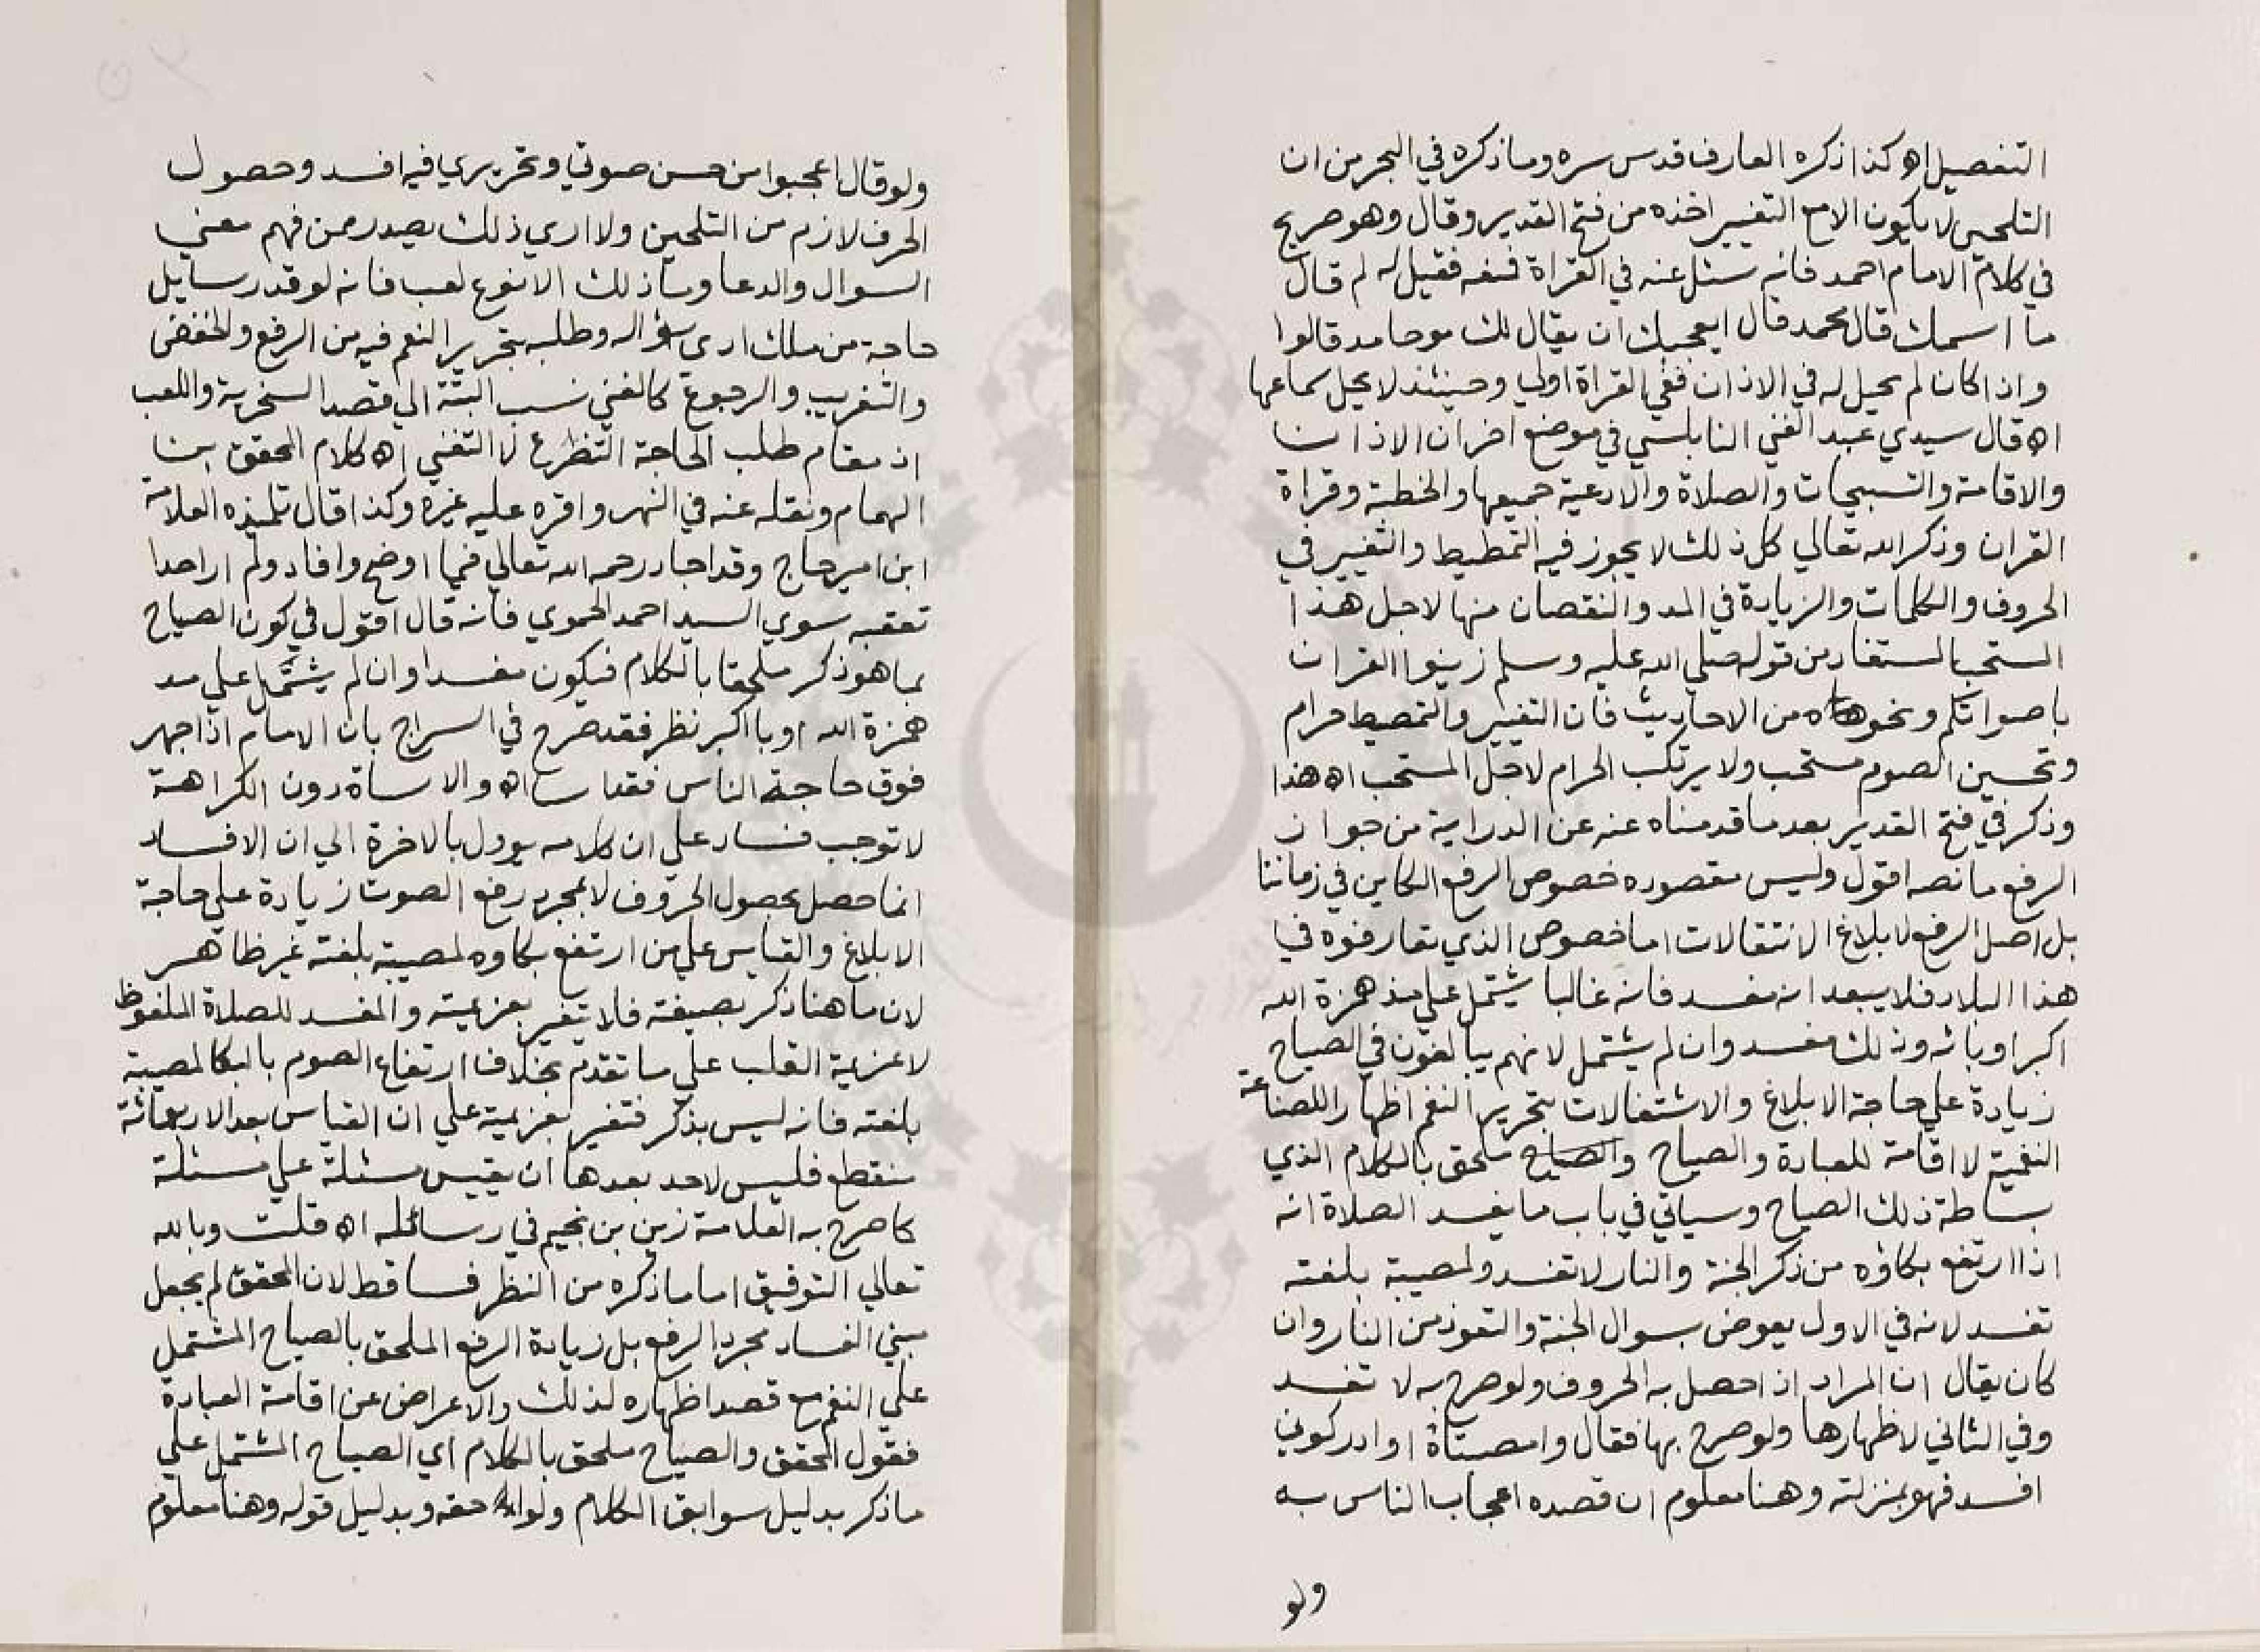 التفصيل اه كذا ذكره العارف قدس سره وما ذكره في البحر من ان
التلحين لا يكون الا مع التغيير اخذه من فتح القدير وقال وهو صريح
في كلام الامام احمد فانه سئل عنه في القراة فمنعه فقيل له لم قال
ما اسمك قال محمد قال ايعجبك ان يقال لك موحامد قالوا
واذا كان لم يحل له في الاذان ففي القراة اولي وحينئذ لا يحل سماعها
اه قال سيدي عبد الغني النابلسي في موضع اخر ان الاذان
والاقامة والتسبيحات والصلاة والادعية جميعها والخطبة وقراة
القران وذكر الله تعالي كل ذلك لا يجوز فيه التمطيط والتغيير في
الحروف والكلمات والزيادة في المد والنقصان منها لاجل هذا
المستحب المستفاد من قوله صلي الله عليه وسلم زينوا القران
باصواتكم ونحوه من الاحاديث فان التغيير والتمصيط حرام
وتحسين الصوم مستحب ولا يرتكب الحرام لاجل المستحب اه هذا
وذكر في فتح القدير بعد ما قدمناه عنه عن الدراية من جواز
الرفع ما نصه اقول وليس مقصوده خصوص الرفع الكاين في زماننا
بل اصل الرفع لابلاغ الانتقالات اما خصوص الذي تعارفوه في
هذا البلاد فلا يبعد انه مفسد فانه غالبا يشتمل علي مذ همزة الله
اكبر او بائه وذلك مفسد وان لم يشتمل لانهم يبالغون في الصياح
زيادة علي حاجة الابلاغ والاشتغالات بتحرير النغم اظهارا للصناعة
النغمية لا اقامة للعبادة والصياح والصياح ملحق بالكلام الذي
بساطة ذلك الصياح وسياتي في باب ما يفسد الصلاة انه
اذا ارتفع بكاؤه من ذكر الجنة والنار لا تفسد ولمصيبة بلغته
تفسد لانه في الاول يعوض بسوال الجنة والتعوذ من النار وان
كان يقال ان المراد اذا حصل به الحروف ولو صرح به لا تفسد
وفي الثاني لاظهارها ولو صرح بها فقال وامصيبتاة او ادركوني
افسد فهو بمنزلته وهنا معلوم ان قصده اعجاب الناس به
ولو
ولو قال اعجبوا من حسن صوتي وتحريري فيه افسد وحصول
الحرف لازم من التلحين ولا اري ذلك يصدر ممن فهم معني
السوال والدعا وما ذلك الا نوع لعب فانه لو قدر سايل
حاجة من ملك ادي سؤاله وطلبه بتحرير النغم فيه من الرفع والخفض
والتغريب والرجوع كالغني نسب البتة الي قصد السخرية واللعب
اذ مقام طلب الحاجة التظرع لا التغني اه كلام المحقق بن
الهمام ونقله عنه في النهر واقره عليه غيره وكذا قال تلميذه العلامة
ابن امير حاج وقد اجاد رحمه الله تعالي فيما اوضح وافاد ولم ار احدا
تعقبه سوي السيد احمد الحموي فانه قال اقول في كون الصياح
بما هو ذكر ملحقا بالكلام فيكون مفسدا وان لم يشتمل علي مد
همزة الله او با اكبر نظر فقد صرح في السراج بان الامام اذا جهر
فوق حاجة الناس فقد اساء اه والاساة دون الكراهة
لا توجب فساد علي ان كلامه يوول بالاخرة الي ان الافساد
انما حصل بحصول الحروف لا بمجرد رفع الصوت زيادة علي حاجة
الابلاغ والقياس علي من ارتفع بكاوه لمصيبة بلغته غير ظاهر
لان ما هنا ذكر بصيغته فلا تغير بعزيمته والمفسد للصلاة الملفوظ
لا عزيمة القلب علي ما تقدم بخلاف ارتفاع الصوم بالبكا لمصيبة
بلغته فانه ليس بذكر فتغير بعزيمية علي ان القياس بعد الاربعمائة
منقطع فليس لاحد بعدها ان يقيس مسئلة علي مسئلة
كما صرح به العلامة زين بن نجيم في رسائله اه قلت وبالله
تعالي التوفيق اما ما ذكره من النظر فساقط لان المحقق لم يجعل
مبني الفساد مجرد الرفع بل زيادة الرفع الملحق بالصياح المشتمل
علي النغم مع قصد اظهاره لذلك والاعراض عن اقامة العبادة
فقول المحقق والصياح ملحق بالكلام اي الصياح المشتمل علي
ما ذكر بدليل سوابق الكلام ولواحقه وبدليل قوله وهنا معلوم